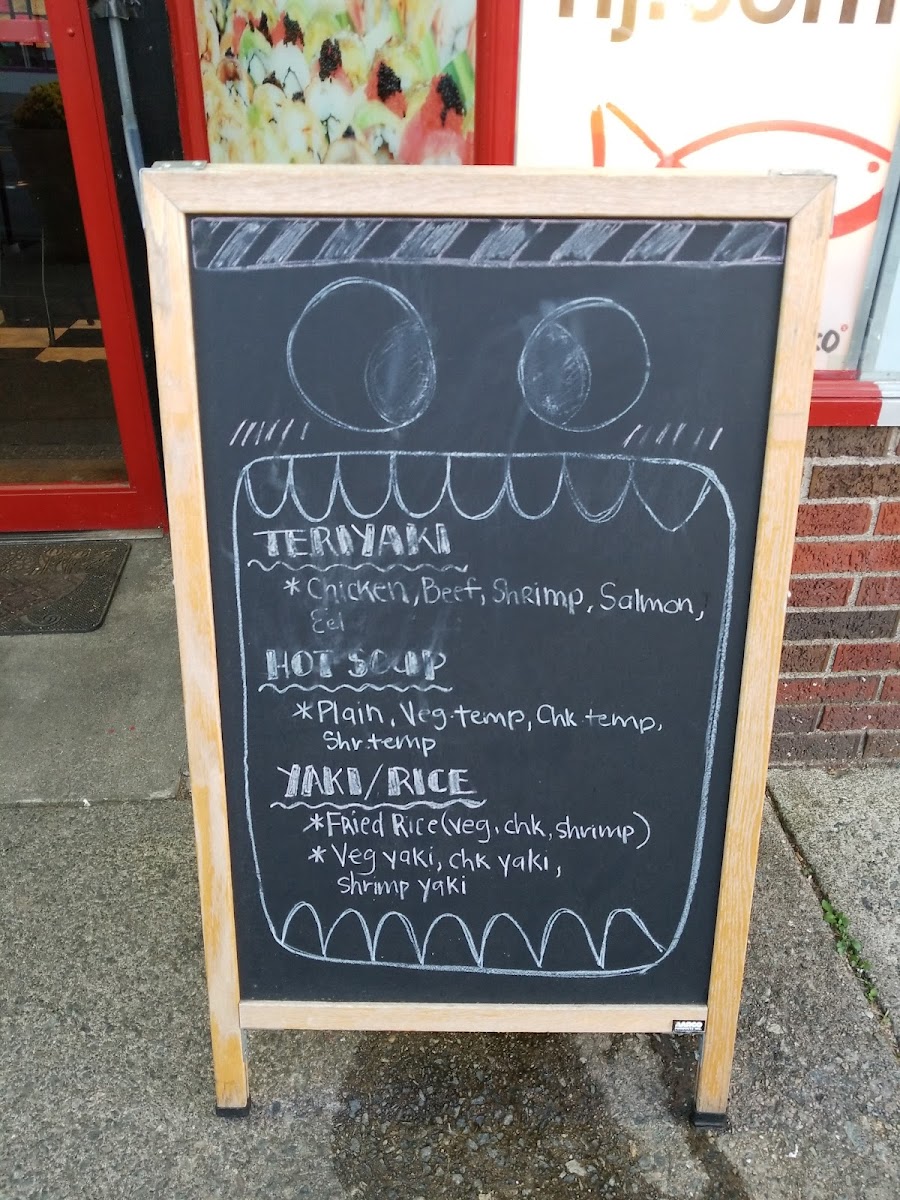 TERIYAKI
*Chicken, Beef, Shrimp, Salmon,
Eel
HOT SOUP
*Plain, Veg.temp, Chk.temp,
Shr.temp
YAKI/RICE
*Fried Rice(veg, chk, shrimp)
*Veg yaki, chk yaki,
shrimp yaki
AARCO